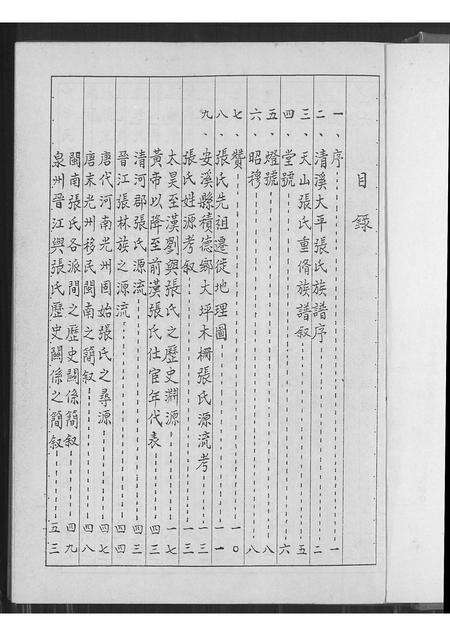 目錄
一、序 一
二、清溪大平張氏族譜序 二
三、天山張氏重脩族譜叙 五
四、堂號 六
五、燈號 八
六、昭穆 八
七、贊 一〇
八、張氏先祖遷徙地理圖 一一
九、安溪縣積德鄉大坪木柵張氏源流考 一三
張氏姓源考叙 一三
太昊至漢劉與張氏之歷史淵源 一七
黃帝以降至前漢張氏仕宦年代表 四三
清河郡張氏源流 四三
晉江張林族之源流 四四
唐代河南光州固始張氏之尋源 四七
唐末光州移民閩南之簡叙 四八
閩南張氏各派間之歷史關係簡叙 四九
泉州晉江與張氏歷史關係之簡叙 五三